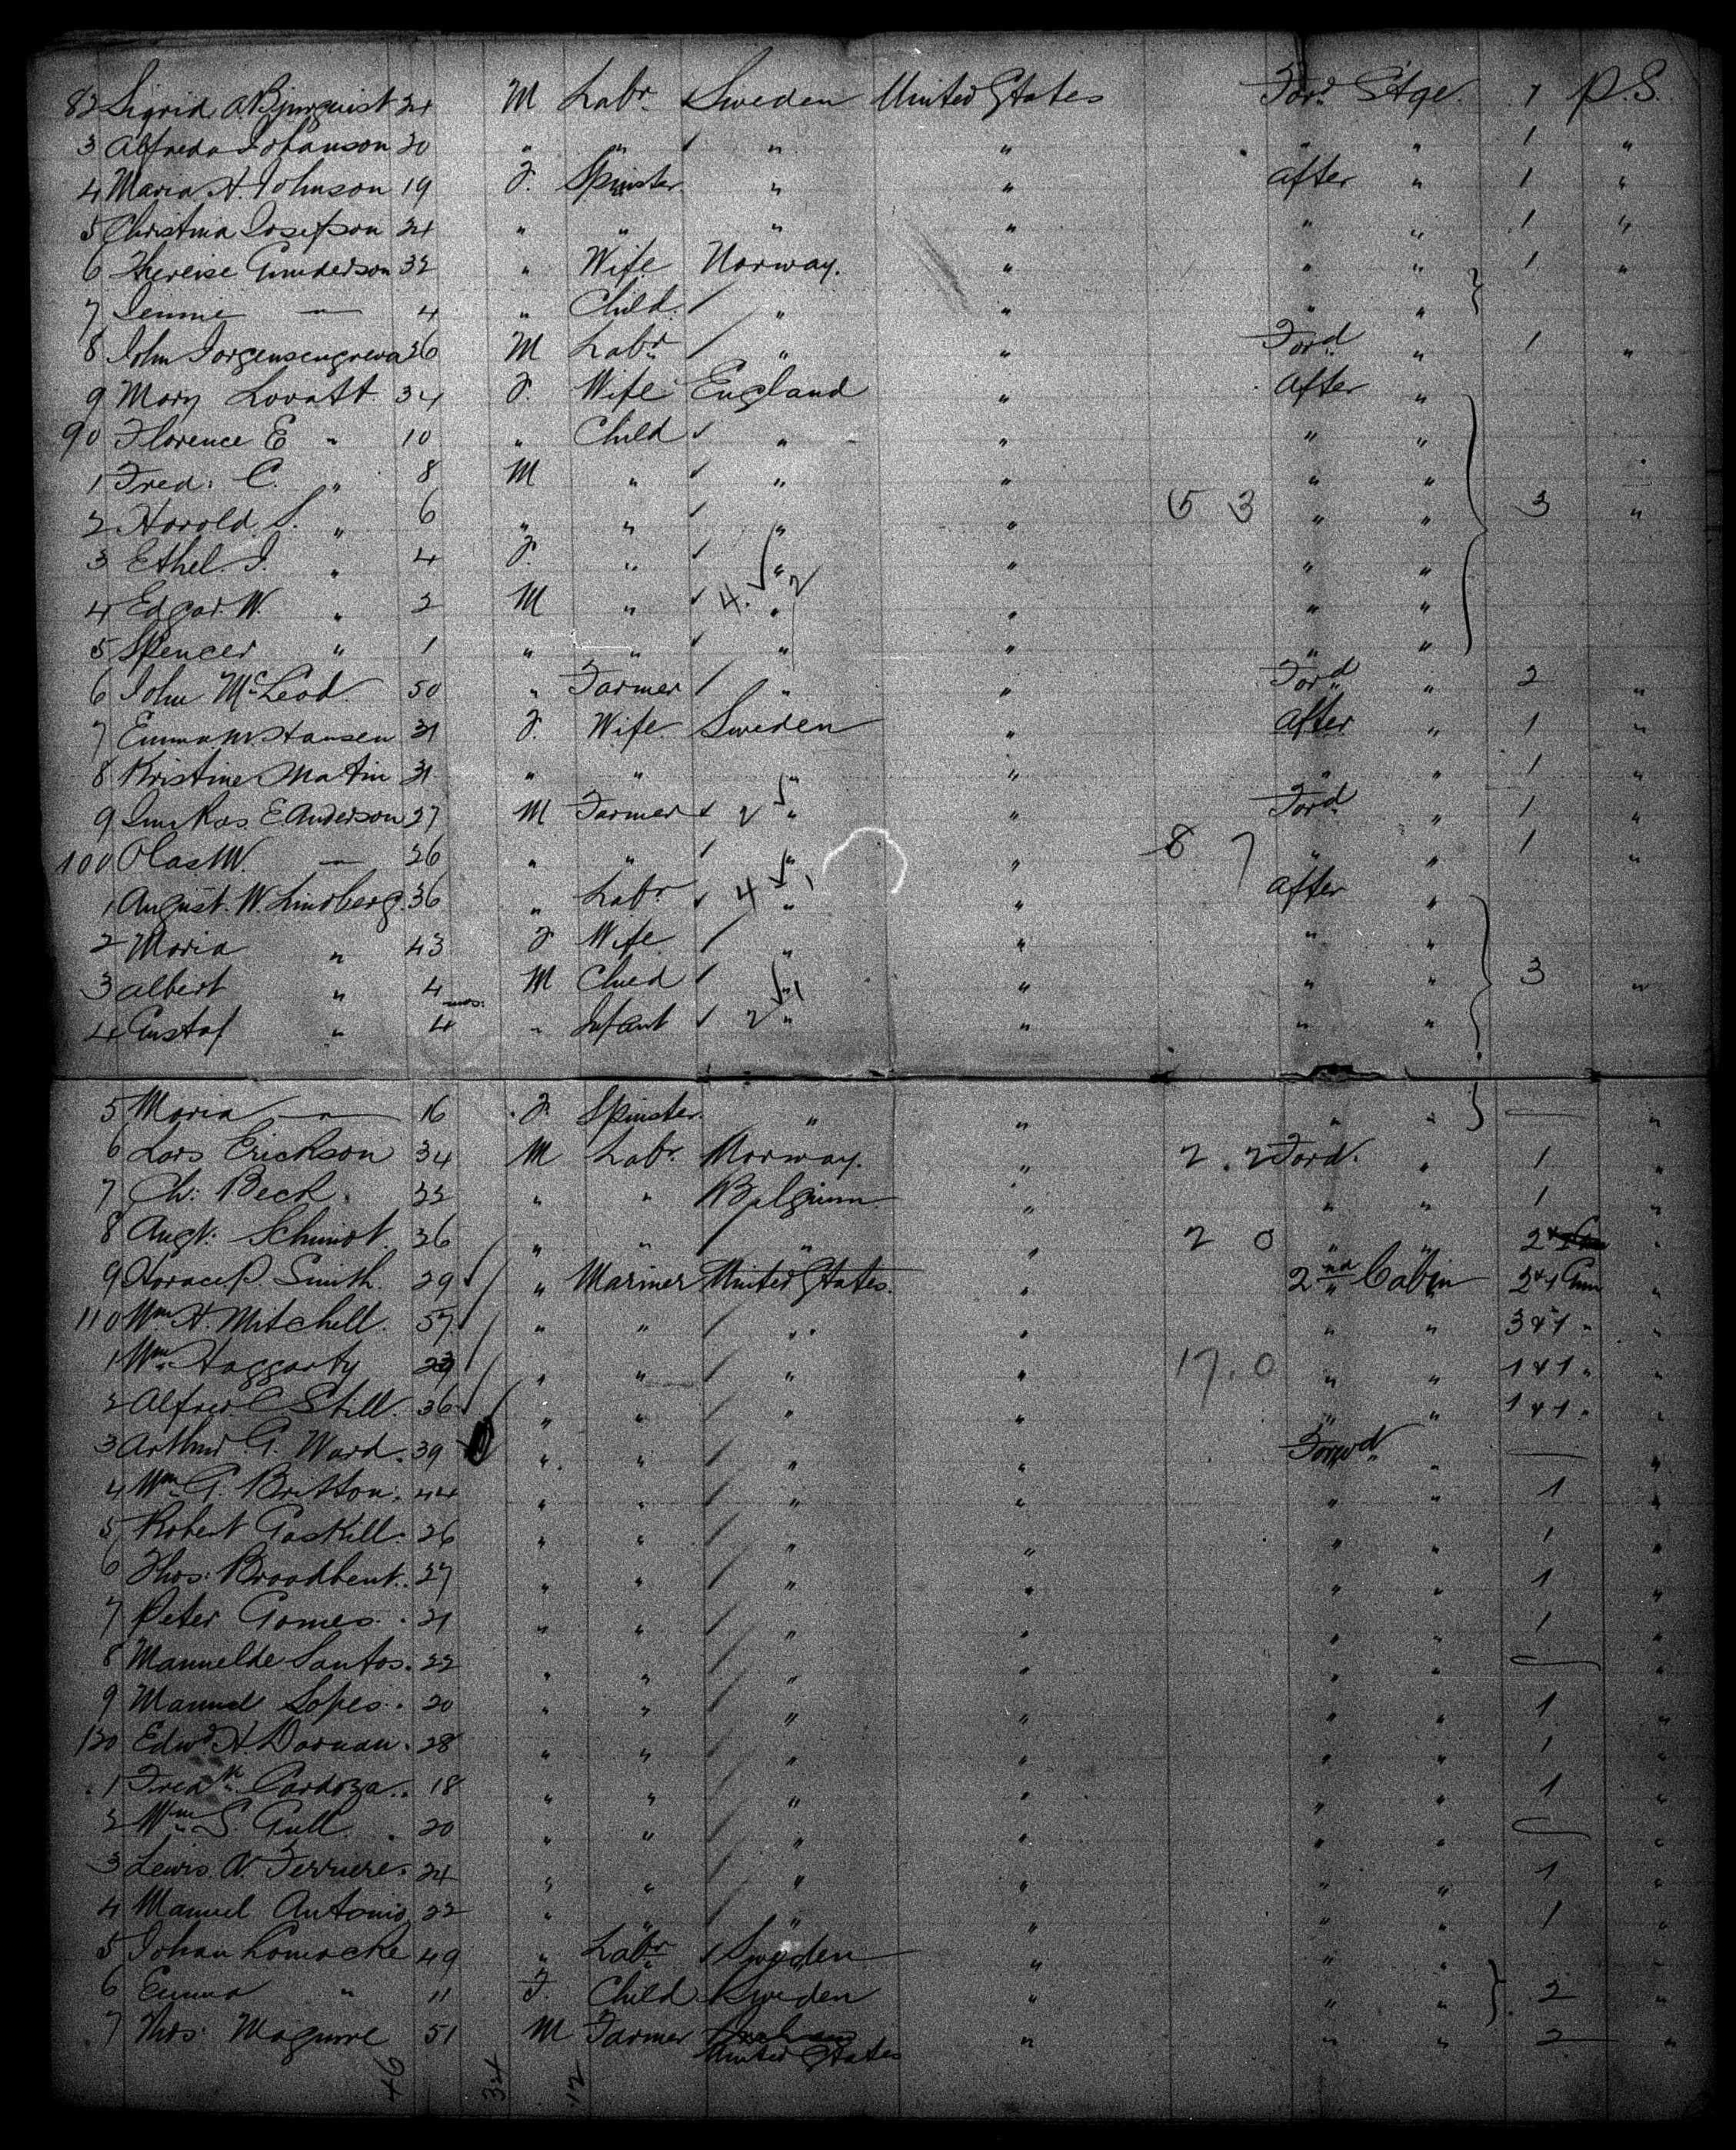 82 Sigrid A. Bjurquist 24 M Labr. Sweden United States Ford. Stge. 1 P.S.
3 Alfreda Johanson 20 " " " " " " 1 "
4 Maria H. Johnson 19 F. Spinster " " After " 1 "
5 Christina Josefson 24 " " " " " " 1 "
6 Thereise Gunderson 32 " Wife Norway. " " " 1 "
7 Jennie — 4 " Child. " " " "
8 John 26 M Labr. " " Ford " 1 "
9 Mary Lovatt 34 F. Wife England " After "
90 Florence E " 10 " Child " " " "
1 Fred: C. " 8 M " " " " "
2 Harold S. " 6 " " " " 5 3 " " 3 "
3 Ethel I. " 4 F. " " " " "
4 Edgar W. " 2 M " 4. " 2 " " "
5 Spencer " 1 " " " " " "
6 John McLeod 50 " Farmer " " Ford " 2 "
7 Emma M. Hansen 31 F. Wife Sweden " After " 1 "
8 Kristine Matin 31 " " " " " " 1 "
9 E. Anderson 27 M Farmer 2 " " Ford " 1 "
100 W. — 26 " " " " 8 7 " " 1 "
1 August. W. Lindberg. 36 " Labr. 4 " 1 " After "
2 Maria " 43 F Wife " " " "
3 Albert " 4 M Child " 1 " " " 3 "
4 Gustaf " 4 mos. " Infant 2 " " " "
5 Maria — " — 16 F. Spinster. " " " " — "
6 Lars Erickson 34 M Labr. Norway. " 2 . 2 Ford. " 1 "
7 Ch: Beck. 22 " " Belgium " " " 1 "
8 Augt: Schmidt. 26 " " " " 2 0 " " 2 "
9 Horace P. Smith. 29 " Mariner United States. " 2nd Cabin 2+1 "
110 Wm. H. Mitchell. 57 " " " " " " 3+1 " "
1 Wm. Haggarty 23 " " " " 17.0 " " 1+1 " "
2 Alfred C. Still. 36 " " " " " " 1+1 " "
3 Arthur G. Ward. 39 " " " " Forwd " — "
4 Wm. G. Britton. 44 " " " " " " 1 "
5 Robert Gaskill. 26 " " " " " " 1 "
6 Thos: Broadbent. 27 " " " " " " 1 "
7 Peter Gomes. 21 " " " " " " 1 "
8 Manuel de Santos. 22 " " " " " " — "
9 Manuel Lopes. 20 " " " " " " 1 "
120 Edwd. H. Dornan. 28 " " " " " " 1 "
1 Fredk. Cardoza. 18 " " " " " " 1 "
2 Wm. S. Gull. 20 " " " " " " — "
3 Lewis A. Ferriere. 24 " " " " " " 1 "
4 Manuel Antonio 22 " " " " " " 1 "
5 Johan 49 " Labr Sweden " " "
6 Emma " 11 F. Child Sweden " " " 2 "
7 Thos: Maguire 51 M Farmer " " " 2 "
United States
46 34 12